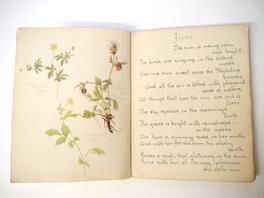 June.
The sun is rising calm
and bright.
The birds are singing in the distant
woods
Over his own sweet voice the Stockdove
broods
And all the air is filled with pleasant
noise of waters
All things that love the sun are out of
doors
The sky rejoices in the mornings
birth.
The grass is bright with raindrops:
on the moors
The Hare is running races in her mirth.
And with her feet she from the plashy
earth
Raises a mist; that, glittering in the sun
Runs with her all the way, wherever
she doth run.